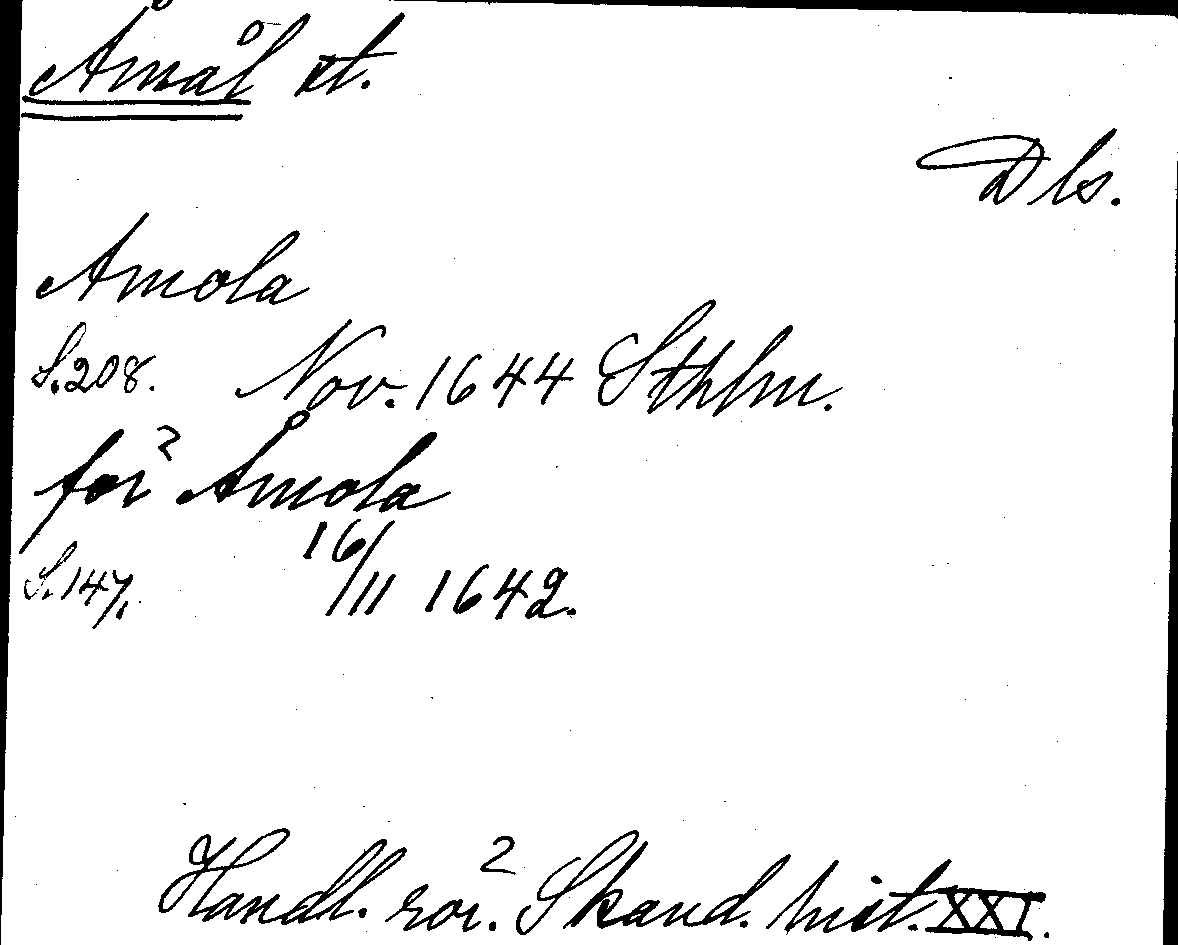 Åmål st.
Dls.
Amola
S. 208. Nov. 1644 Sthlm.
för Åmola
S. 147. 16/11 1642.
Handl. rör. Skand. hist. XXI.